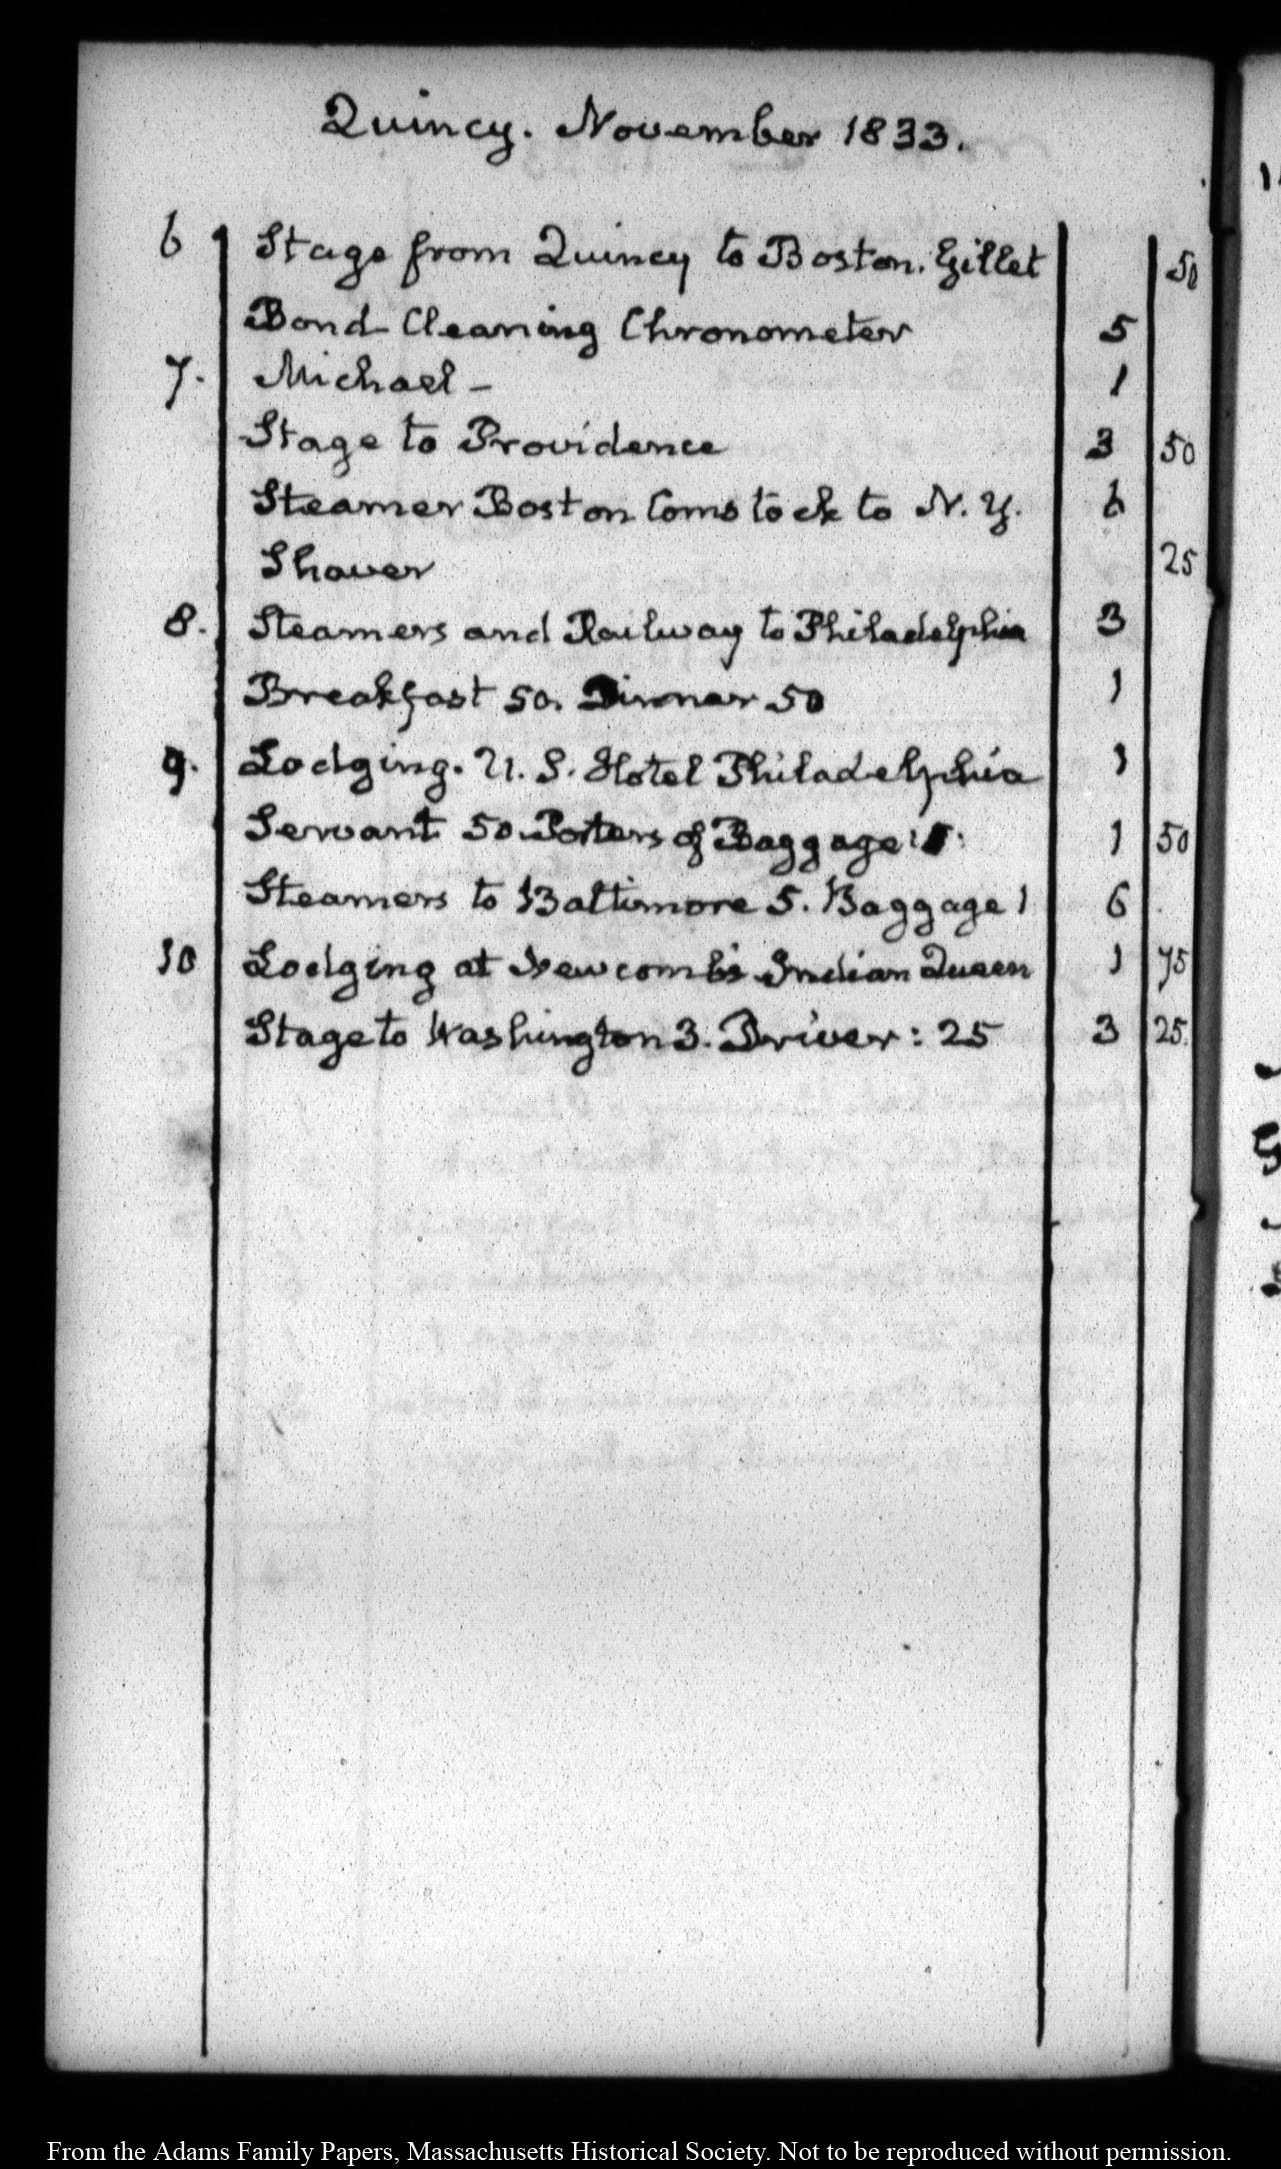 Quincy. November 1833.
6 Stage from Quincy to Boston. Gillet 50
Bond Cleaning Chronometer 5
7. Michael - 1
Stage to Providence 3 50
Steamer Boston Comstock to N. Y. 6
Shaver 25
8. Steamers and Railway to Philadelphia 3
Breakfast 50. Dinner 50 1
9. Lodging. U. S. Hotel Philadelphia 1
Servant 50. Porters of Baggage 1 50
Steamers to Baltimore 5. Baggage 1 6
10 Lodging at Newcomb's Indian Queen 1 75
Stage to Washington 3. Driver: 25 3 25.
From the Adams Family Papers, Massachusetts Historical Society. Not to be reproduced without permission.